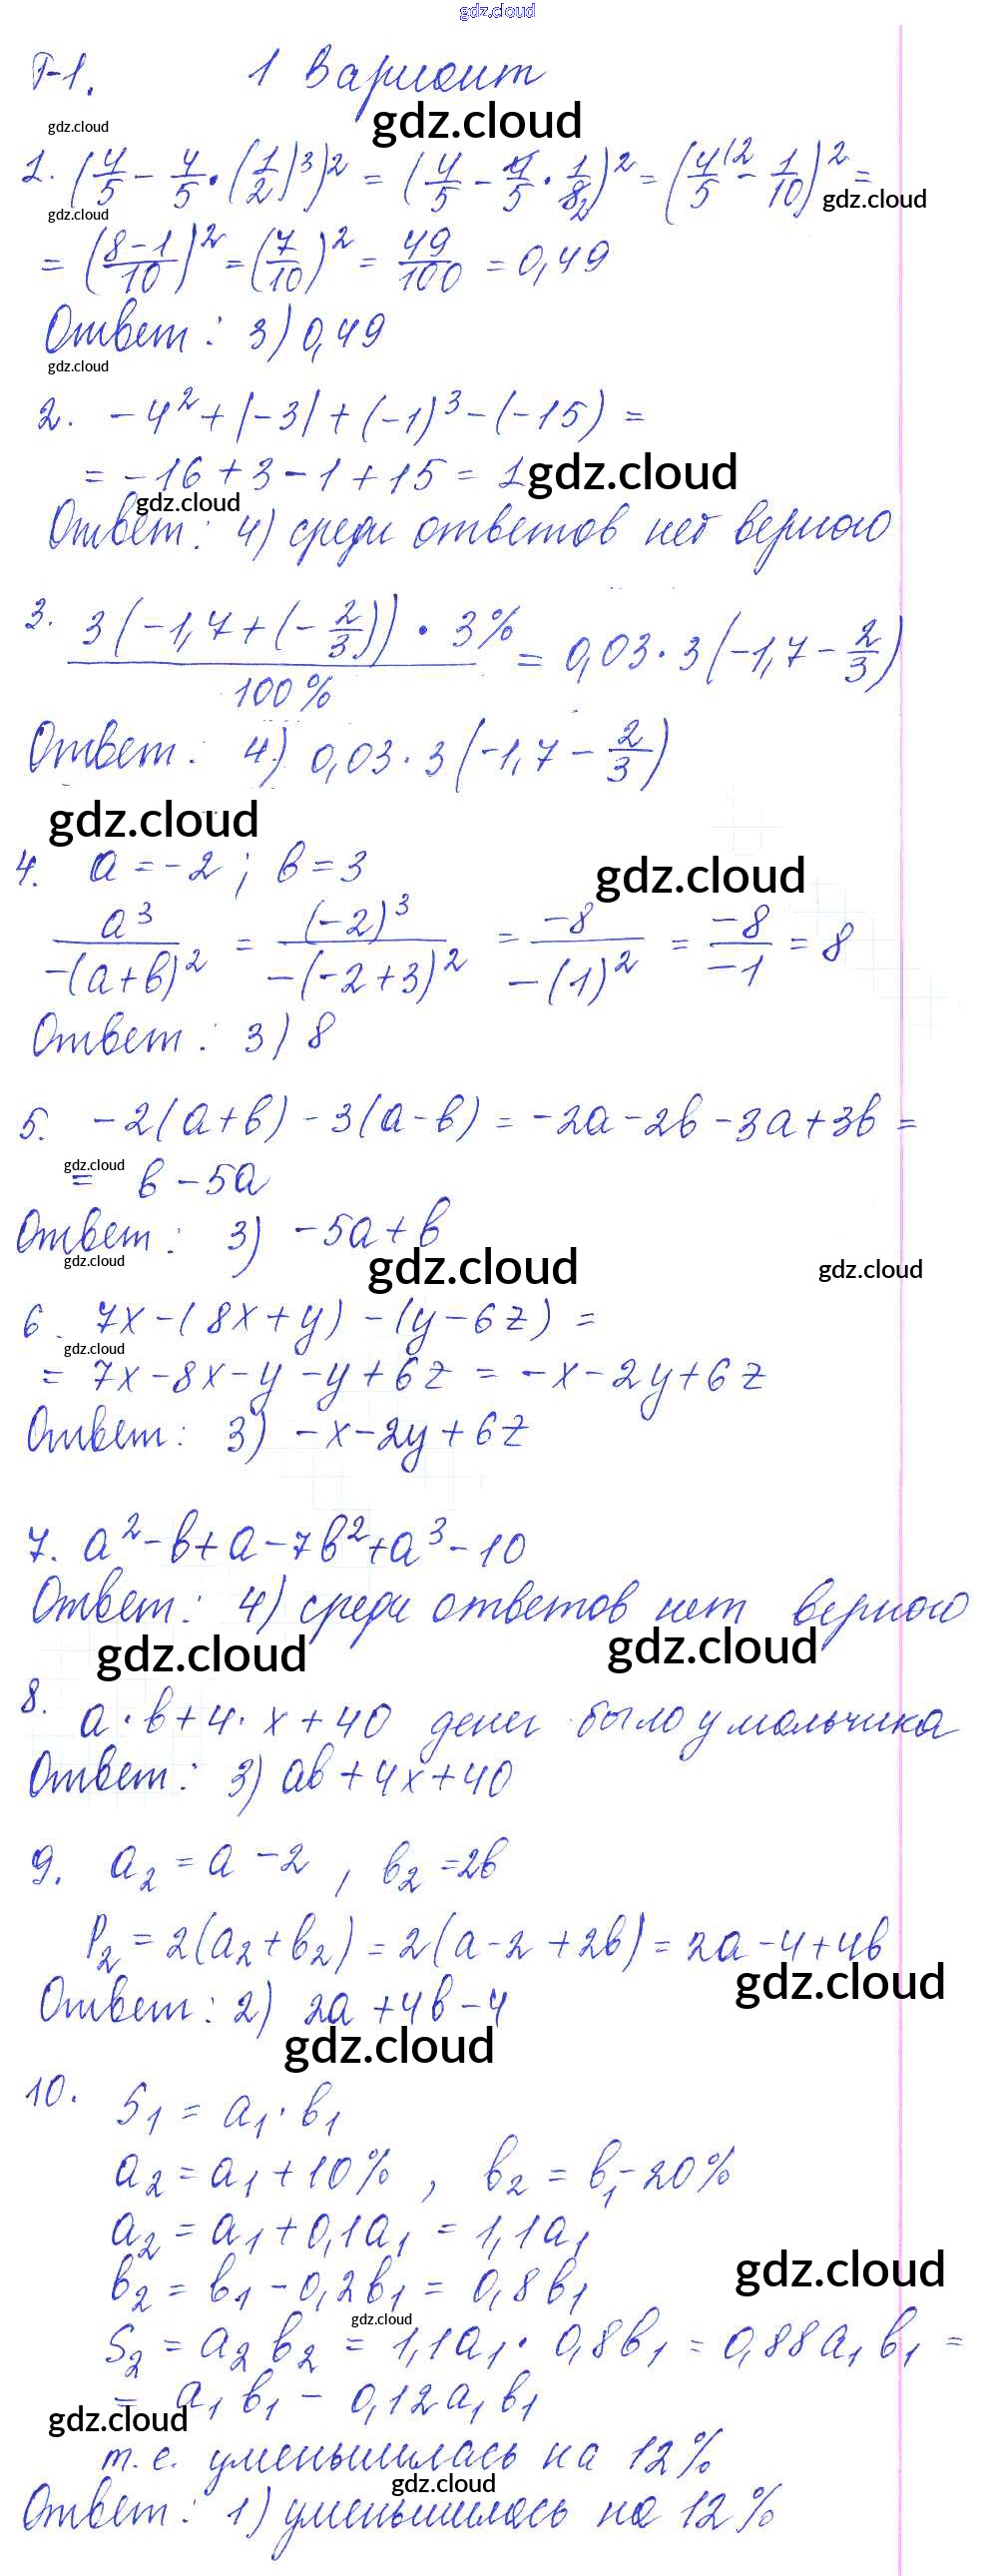 gdz.cloud
Т-1. 1 Вариант
gdz.cloud gdz.cloud
1. (4/5 - 4/5 · (1/2)³)² = (4/5 - 4/5 · 1/8₂)² = (4/5 ⁽² - 1/10)² =
gdz.cloud gdz.cloud
= ((8-1)/10)² = (7/10)² = 49/100 = 0,49
Ответ: 3) 0,49
gdz.cloud
2. -4² + |-3| + (-1)³ - (-15) =
= -16 + 3 - 1 + 15 = 1
gdz.cloud
gdz.cloud
Ответ: 4) среди ответов нет верного
3. 3(-1,7 + (-2/3)) · 3% / 100% = 0,03 · 3(-1,7 - 2/3)
Ответ: 4) 0,03 · 3(-1,7 - 2/3)
gdz.cloud
4. a = -2; b = 3
gdz.cloud
a³/-(a+b)² = (-2)³/-(-2+3)² = -8/-(1)² = -8/-1 = 8
Ответ: 3) 8
5. -2(a+b) - 3(a-b) = -2a - 2b - 3a + 3b =
gdz.cloud
= b - 5a
Ответ: 3) -5a + b
gdz.cloud gdz.cloud gdz.cloud
6. 7x - (8x + y) - (y - 6z) =
gdz.cloud
= 7x - 8x - y - y + 6z = -x - 2y + 6z
Ответ: 3) -x - 2y + 6z
7. a² - b + a - 7b² + a³ - 10
Ответ: 4) среди ответов нет верного
gdz.cloud gdz.cloud
8. a · b + 4 · x + 40 денег было у мальчика
Ответ: 3) ab + 4x + 40
9. a₂ = a - 2, b₂ = 2b
P₂ = 2(a₂ + b₂) = 2(a - 2 + 2b) = 2a - 4 + 4b
gdz.cloud
Ответ: 2) 2a + 4b - 4
gdz.cloud
10. S₁ = a₁ · b₁
a₂ = a₁ + 10%, b₂ = b₁ - 20%
a₂ = a₁ + 0,1a₁ = 1,1a₁
gdz.cloud
b₂ = b₁ - 0,2b₁ = 0,8b₁
gdz.cloud
S₂ = a₂b₂ = 1,1a₁ · 0,8b₁ = 0,88a₁b₁ =
= a₁b₁ - 0,12a₁b₁
gdz.cloud
т.е. уменьшилась на 12%
gdz.cloud
Ответ: 1) уменьшилась на 12%